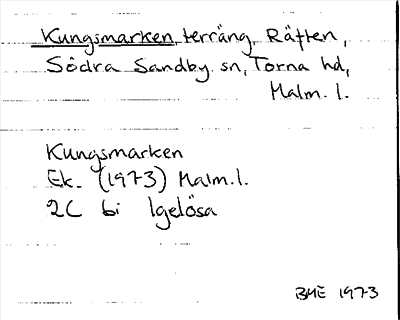 Kungsmarken, terräng, Räften,
Södra Sandby sn, Torna hd,
Malm. l.
Kungsmarken
Ek. (1973) Malm. l.
2C bi Igelösa
BME 1973